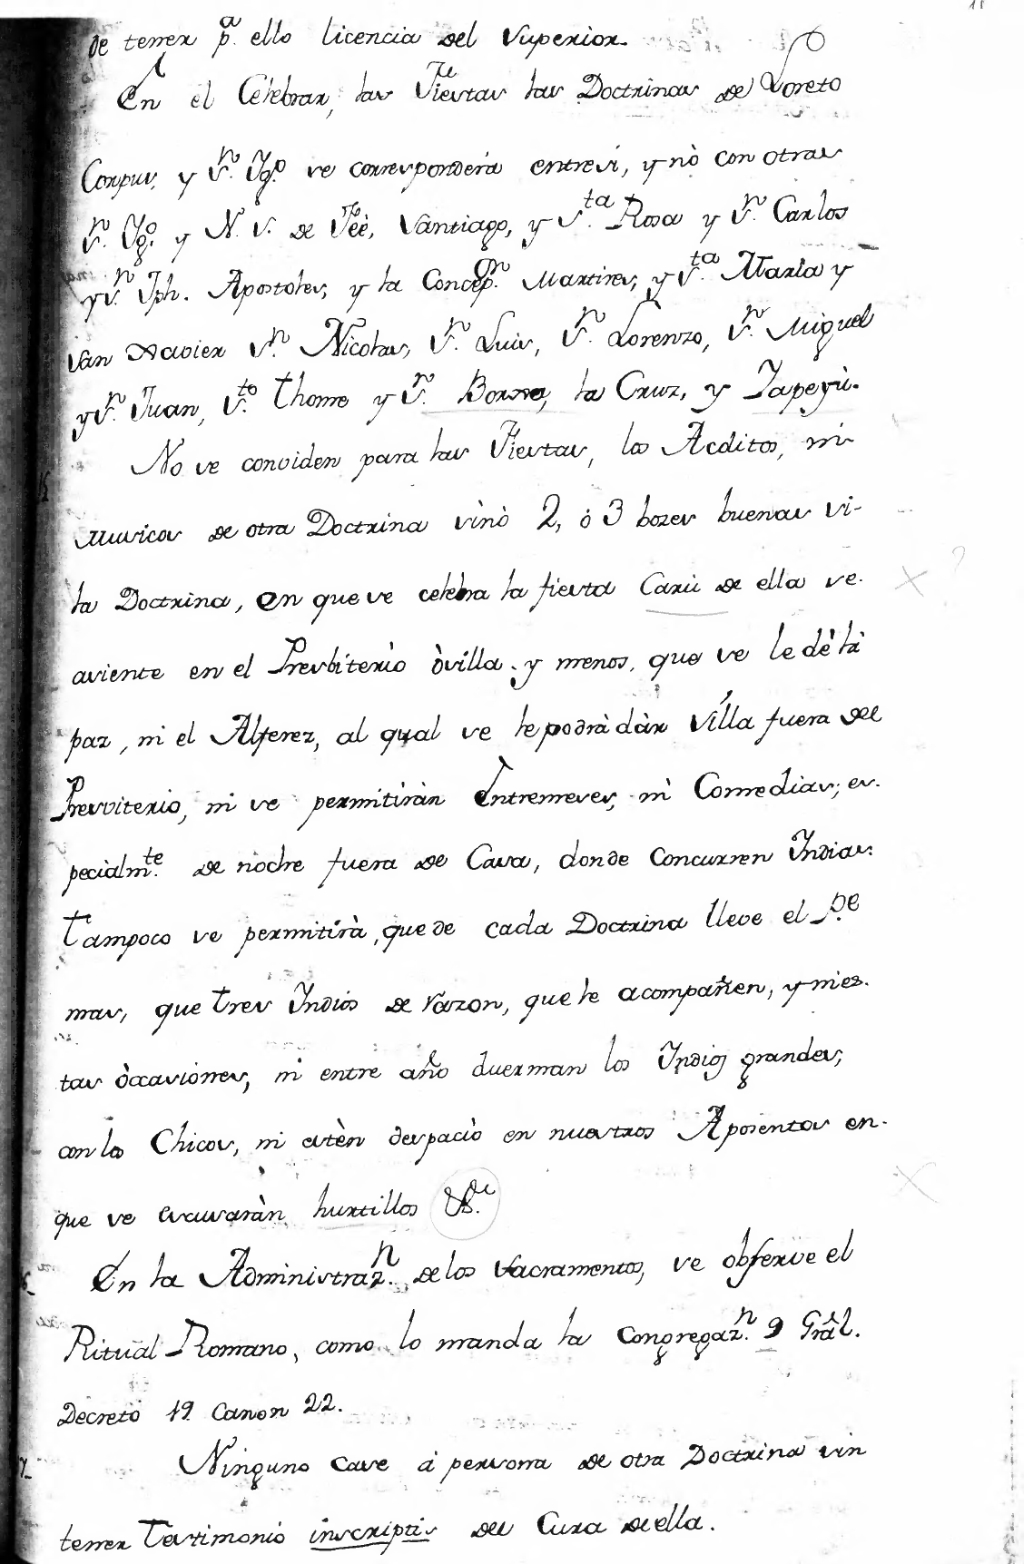 de tener p.ª ello licencia del Superior.
En el Celebrar, las Fiestas las Doctrinas de Loreto
Corpus, y S.ⁿ Ygⁿº se corresponderà entresi, y nò con otras
S.ⁿ Ygº y N. S. de Feè, Santiago, y S.ta Rosa y S.ⁿ Carlos
y S.ⁿ Jph. Apostoles, y la Concepⁿ Martires, y S.ta Maria y
San Xavier S.ⁿ Nicolas, S.ⁿ Luis, S.ⁿ Lorenzo, S.ⁿ Miguel
y S.ⁿ Juan, S.to Thome y S.ⁿ Borxa, la Cruz, y Yapeyù.
No se conviden para las Fiestas, los Acditos, ni
Musicos de otra Doctrina sinò 2, ò 3 bozes buenas si
la Doctrina, en que se celebra la fiesta Carii de ella se
aviente en el Presbiterio òsilla; y menos, que se le dè là
paz, ni el Alferez, al qual se le podrà dàr Silla fuera del
Presviterio, ni se permitiràn Entremeses, nì Comedias; es-
pecialm.te de noche fuera de Casa, donde concurren Indias.
Tampoco se permitirà, que de cada Doctrina lleve el P.e
mas, que tres Indios de razon, que le acompañen, y in es-
tas òccasiones, ni entre año duerman los Indios grandes,
con los Chicos, ni estèn despaciò en nuestros Aposentos en-
que se escusaràn hurtillos &.
En la Administraz.ⁿ de los Sacramentos, se observe el
Ritual Romano, como lo manda la Congregaz.ⁿ 9 Grâl.
Decreto 19 Canon 22.
Ninguno case à persona de otra Doctrina sin
tener Testimonio inscriptis del Cura de ella.